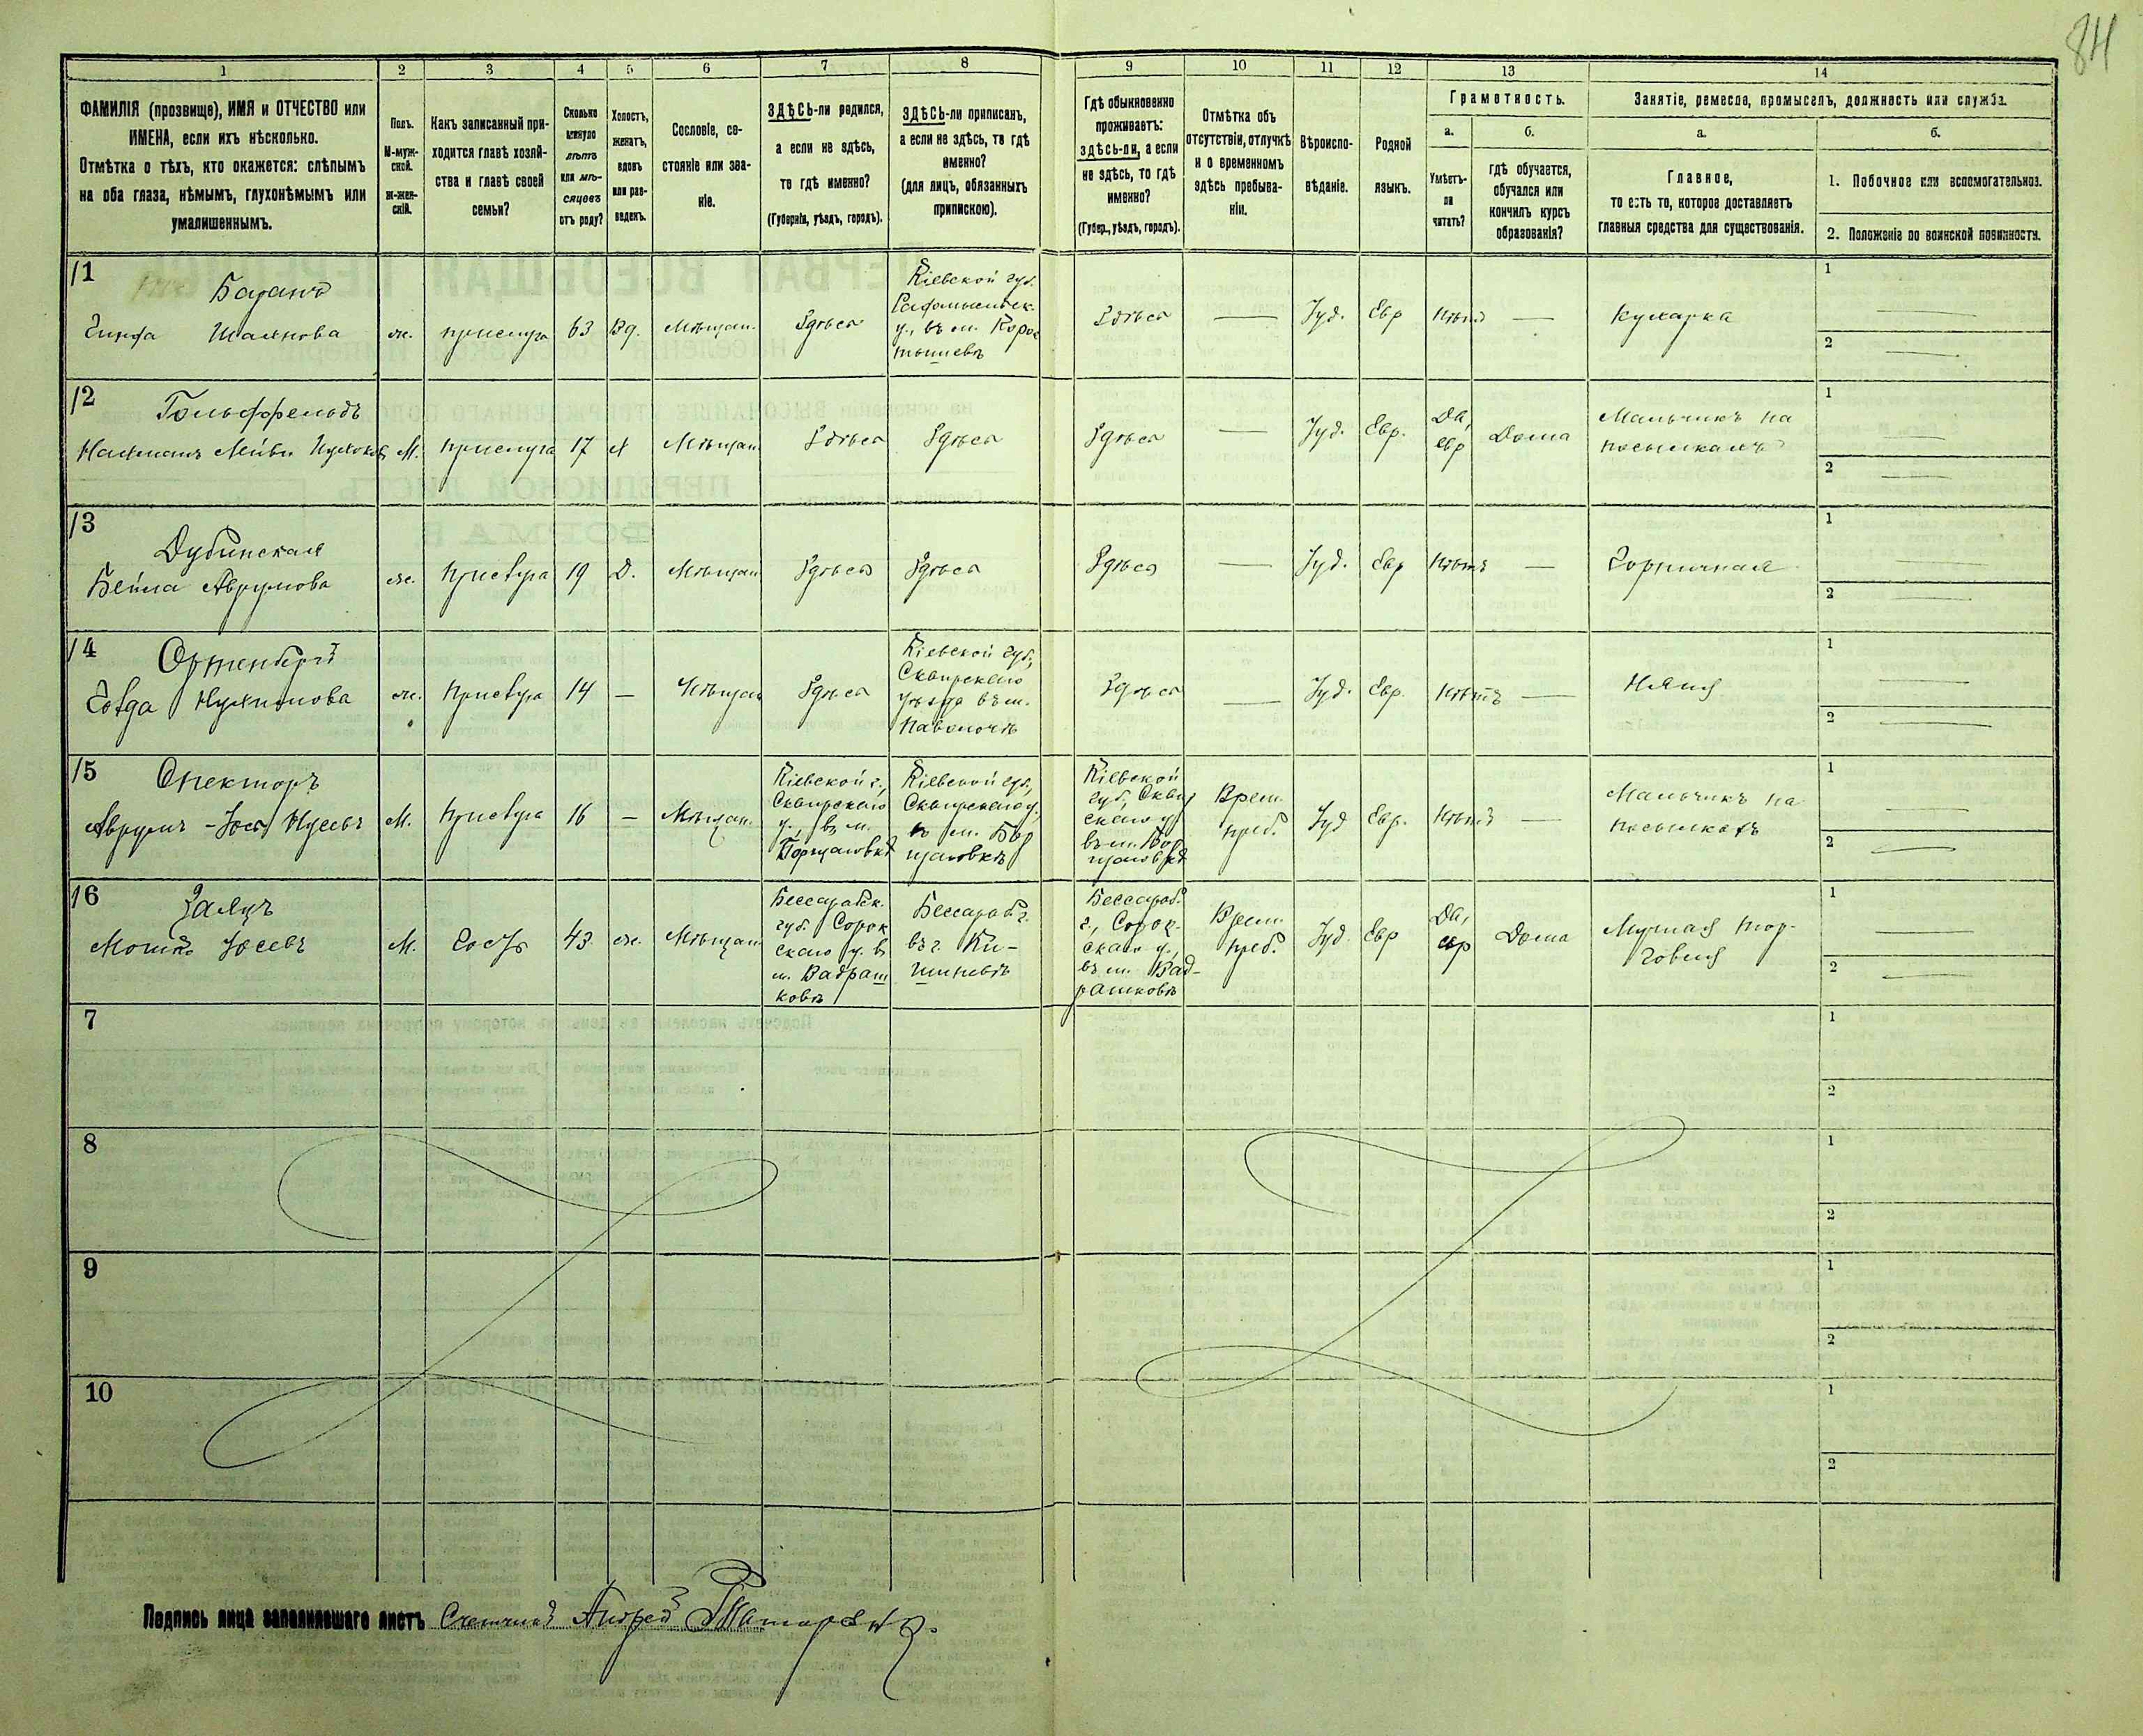 84
1 2 3 4 5 6 7 8 9 10 11 12 13 14
ФАМИЛІЯ (прозвище), ИМЯ и ОТЧЕСТВО или
ИМЕНА, если ихъ нѣсколько.
Отмѣтка о тѣхъ, кто окажется: слѣпымъ
на оба глаза, нѣмымъ, глухонѣмымъ или
умалишеннымъ.
Полъ.
М-муж-
ской.
Ж-жен-
скій.
Какъ записанный при-
ходится главѣ хозяй-
ства и главѣ своей
семьи?
Сколько
минуло
лѣтъ
или мѣ-
сяцевъ
отъ роду?
Холостъ,
женатъ,
вдовъ
или раз-
веденъ.
Сословіе, со-
стояніе или зва-
ніе.
ЗДѢСЬ-ли родился,
а если не здѣсь,
то гдѣ именно?
(Губернія, уѣздъ, городъ).
ЗДѢСЬ-ли приписанъ,
а если не здѣсь, то гдѣ
именно?
(для лицъ, обязанныхъ
припискою).
Гдѣ обыкновенно
проживаетъ:
здѣсь-ли, а если
не здѣсь, то гдѣ
именно?
(Губер., уѣздъ, городъ).
Отмѣтка объ
отсутствіи, отлучкѣ
и о временномъ
здѣсь пребыва-
ніи.
Вѣроиспо-
вѣданіе.
Родной
языкъ.
Грамотность.
а.
Умѣетъ-
ли
читать?
б.
гдѣ обучается,
обучался или
кончилъ курсъ
образованія?
Занятіе, ремесло, промыселъ, должность или служба.
а.
Главное,
то есть то, которое доставляетъ
главныя средства для существованія.
б.
1. Побочное или вспомогательное.
2. Положеніе по воинской повинности.
11
Шаянова
ж.
прислуга
63
Вд.
Мѣщан.
Здѣсь
Кіевской губ.
Радомысльск.
у., въ м. Корос
тышевѣ
Здѣсь
—
Іуд.
Евр
Нѣтъ
—
Кухарка
1 —
2 —
12
Гольдфельдъ
М.
прислуга
17
Х
Мѣщан.
Здѣсь
Здѣсь
Здѣсь
—
Іуд.
Евр.
Да,
евр
Дома
Мальчикъ на
посылкахъ
1 —
2 —
13
Дубинская
Бейла Аврумова
ж.
Прислуга
19
Д.
Мѣщан
Здѣсь
Здѣсь
Здѣсь
—
Іуд.
Евр
Нѣтъ
—
Горничная
1 —
2 —
14
Ортенбергъ
ж.
Прислуга
14
—
Мѣщан
Здѣсь
Кіевской губ,
Сквирскаго
уѣзда въ м.
Паволочѣ
Здѣсь
—
Іуд.
Евр.
Нѣтъ
—
Няня
1 —
2 —
15
Спекторъ
Аврумъ-Іось Нусевъ
М.
Прислуга
16
—
Мѣщан.
Кіевской г.,
Сквирскаго
у., въ м.
Борщаговкѣ
Кіевской губ,
Сквирскаго у.
въ м. Бор
щаговкѣ
Кіевской
губ, Сквир
скаго у
въ м. Бор
щаговкѣ
Врем.
преб.
Іуд
Евр.
Нѣтъ
—
Мальчикъ на
посылкахъ
1 —
2 —
16
Заяцъ
Мошко Іосевъ
М.
Гость
43
ж.
Мѣщан
Бессарабск.
губ. Сорок
скаго у. в
м. Вадраш
ковѣ
Бессараб г.
въ г. Ки-
шиневѣ
Бессараб.
г., Сорок-
скаго у.,
въ м. Вад-
рашковѣ
Врем.
преб.
Іуд.
Евр
Да,
евр
Дома
Мучная тор-
говля
1 —
2 —
7
1
2
8
1
2
9
1
2
10
1
2
Подпись лица заполнившаго листъ Счетчикъ Андрей